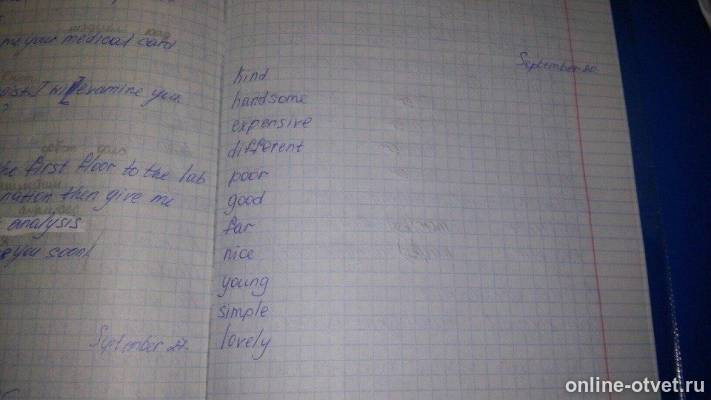 me your medical card
I will examine you
?
the first floor to the lab
then give me
analysis
you soon!
September 27.
September
kind
handsome
expensive
different
poor
good
far
nice
young
simple
lovely
online-otvet.ru